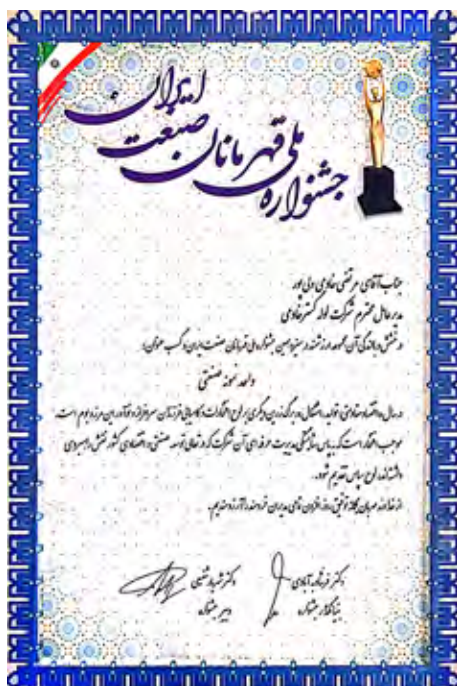 جشنواره ملی قهرمانان صنعت ایران
جناب آقای مرتضی خادمی ولی پور
مدیر عامل محترم شرکت لوله گستر خادمی
درخشش و بالندگی آن مجموعه ارزشمند در سیزدهمین جشنواره ملی قهرمانان صنعت ایران و کسب عنوان:
واحد نمونه صنعتی
در سال «اقتصاد مقاومتی، تولید، اشتغال» برگ زرین دیگری بر لوح افتخارات و کامیابی فرزندان سرفراز و نوآور این مرز و بوم است.
موجب افتخار است که به پاس شایستگی مدیریت حرفه ای آن شرکت که در تعالی توسعه صنعتی و اقتصادی کشور نقش راهبردی
داشته اند، لوح سپاس تقدیم شود.
از خداوند مهربان توفیق روز افزون تمامی مدیران خردمند را آرزومندیم.
دکتر فرزانه آبادی
دکتر شهریار شفیعی
بنیانگذار جشنواره
دبیر جشنواره